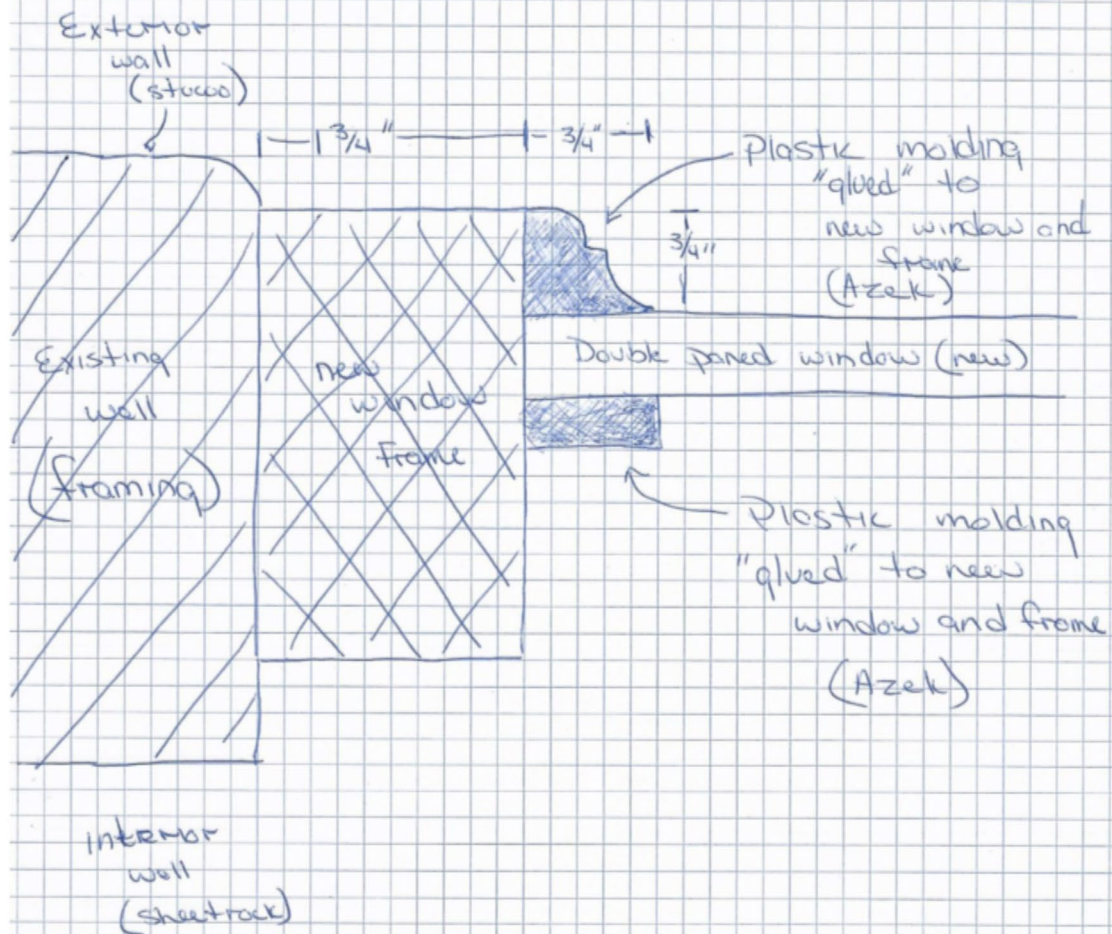 Exterior
wall
(stucco)
1 3/4"
3/4"
Plastic molding
"glued" to
new window and
frame
(Azek)
3/4"
Existing
wall
(framing)
new
window
frame
Double paned window (new)
Plastic molding
"glued" to new
window and frame
(Azek)
interior
wall
(sheetrock)